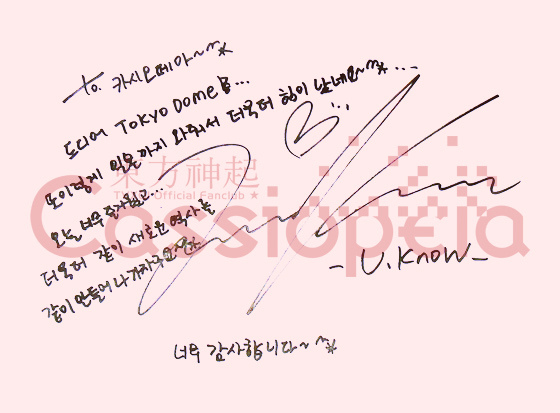 To. 카시오페아~^^*
드디어 TOKYO DOME을...
또 이렇게 일본까지 와줘서 더욱더 힘이 나네요~^^* ...
오늘 너무 감사했고...
더욱더 같이 새로운 역사를
같이 만들어 나가자구요
- U.Know -
너무 감사합니다~^^*
東方神起
The Official Fanclub ★
Cassiopeia